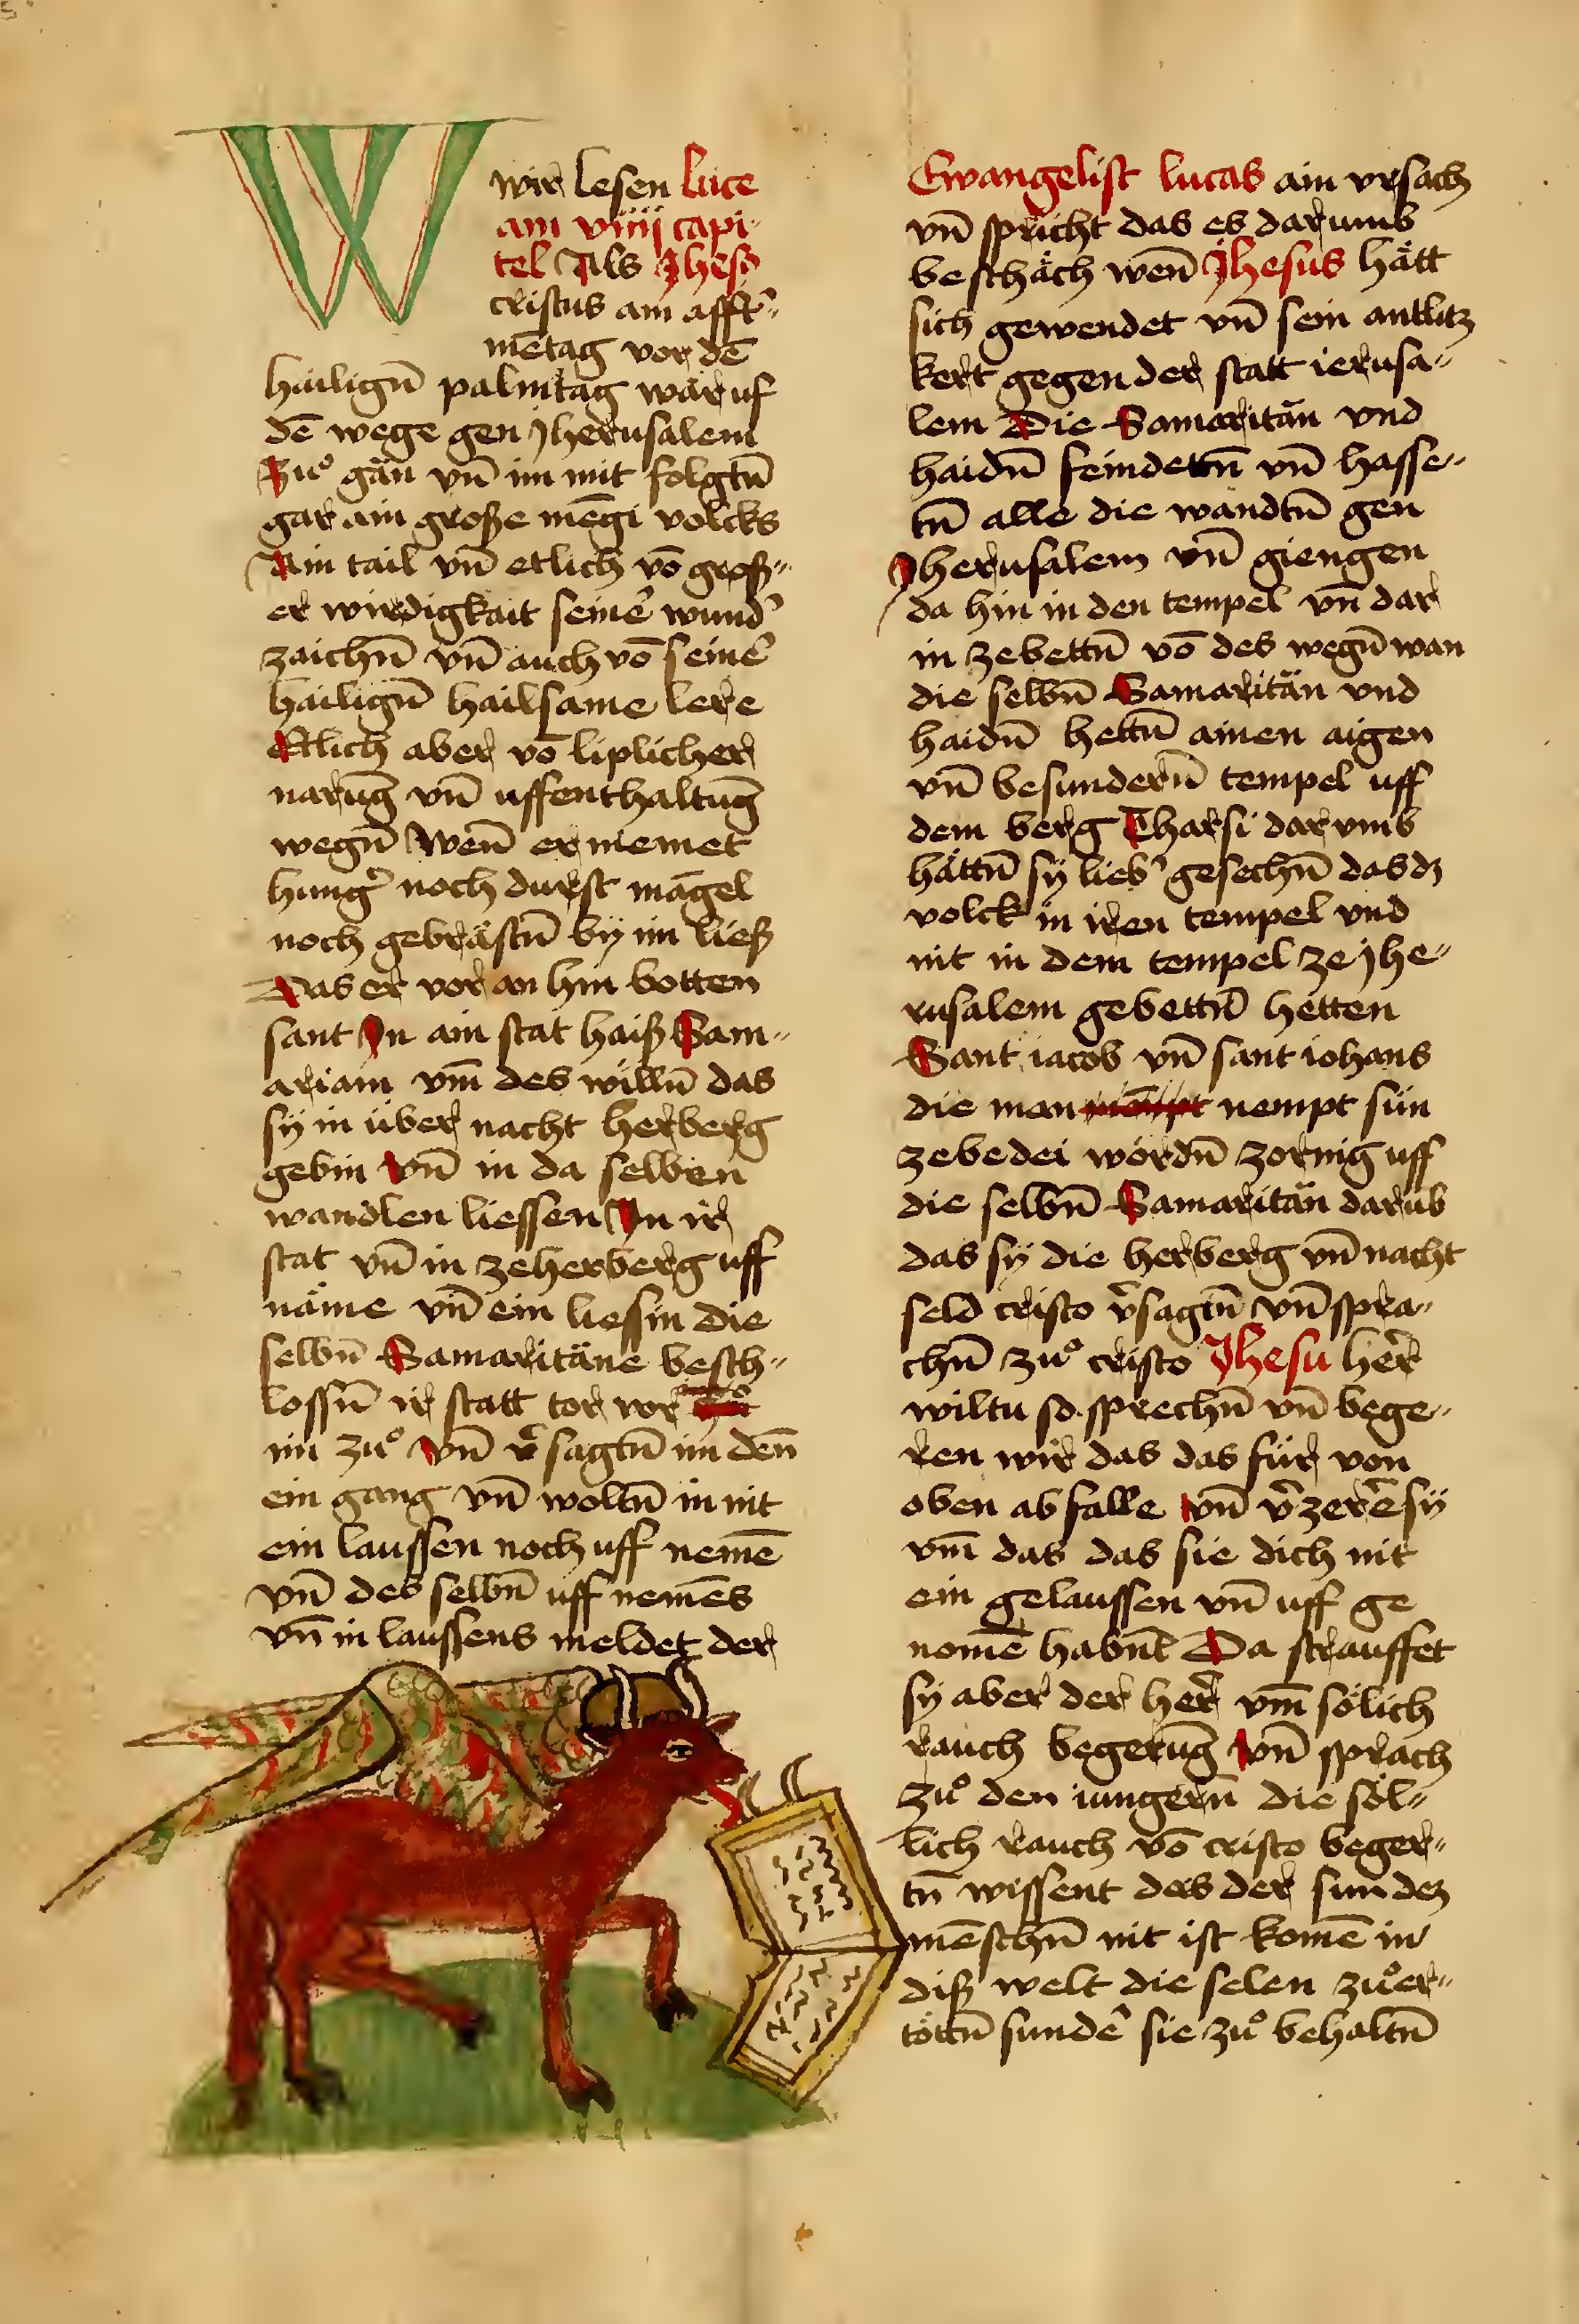 W
wir lesen luce
am viiij capi-
tel Als Jhesꝰ
cristus am afft̾-
mētag vor dē
hailigñ palmtag wär uf
dē wege gen jherusalem
Zuͦ gän vn̄ im mit folgtn̄
gar ain große mēgi volcks
Ain tail vn̄ etlich vō groß-
er wirdigkait seine᷑ wund᷑
zaichn̄ vn̄ auch vō seine᷑
hailign̄ hailsame lere
Etlich aber vō liplicher
narūg vn̄ uffenthaltūg
wegn̄ Wen̄ er niemet
hung᷑ noch durst māgel
noch gebrästn̄ by im ließ
Das er vor an hin botten
sant In ain stat haiß Sam-
ariam vm̄ des willn̄ das
sy in über nacht herberg
gebin vn̄ in da selben
wandlen liessen In ir
stat vn̄ in ze herberg uff
näme vn̄ ein liessin die
selbn̄ Samaritäne besch-
lossn̄ ir statt tor vor
im zuͦ vn̄ v᷑sagtn̄ im den̄
ein gang vn̄ woltn̄ in nit
ein laussen noch uff nemē
vn̄ des selbn̄ uff nemēs
vn̄ in laussens meldet der
Ewangelist lucas ain vrsach
vn̄ spricht das es darumb
beschäch wen̄ Jhesus hätt
sich gewendet vn̄ sein antlitz
kert gegen der statt ierusa-
lem Die Samaritän vnd
haidn̄ feindettn̄ vn̄ hasse-
tn̄ alle die wandtn̄ gen
Jherusalem vn̄ giengen
da hin in den tempel vn̄ dar
in ze bettn̄ vō des wegn̄ wan
die selbn̄ Samaritän vnd
haidn̄ hettn̄ ainen aigen
vn̄ besundern̄ tempel uff
dem berg Tharsi dar vmb
hättn̄ sy lieb᷑ gesechn̄ das dz
volck in iren tempel vnd
nit in dem tempel ze jhe-
rusalem gebettn̄ hetten
Sant iacob vn̄ sant iohans
die man nempt sün
zebedei wordn̄ zornig uff
die selbn̄ Samaritän darūb
das sy die herberg vn̄ nacht
seld cristo v᷑sagtn̄ vn̄ spra-
chn̄ zuͦ cristo Jhesu her᷑
wiltu so sprechn̄ vn̄ bege-
ren wir das das für von
oben ab falle vn̄ v᷑zerē sy
vm̄ das das sie dich nit
ein gelaussen vn̄ uff ge
nomē habn̄t Da strauffet
sy aber der her᷑ vm̄ sölich
rauch begerūg vn̄ sprach
zuͦ den iungern̄ die söl-
lich rauch vō cristo beger-
tn̄ wissent das der sun dez
mēschn̄ nit ist komē in
diß welt die selen zuͦ er-
töttn̄ sunde᷑ sie zuͦ behaltn̄